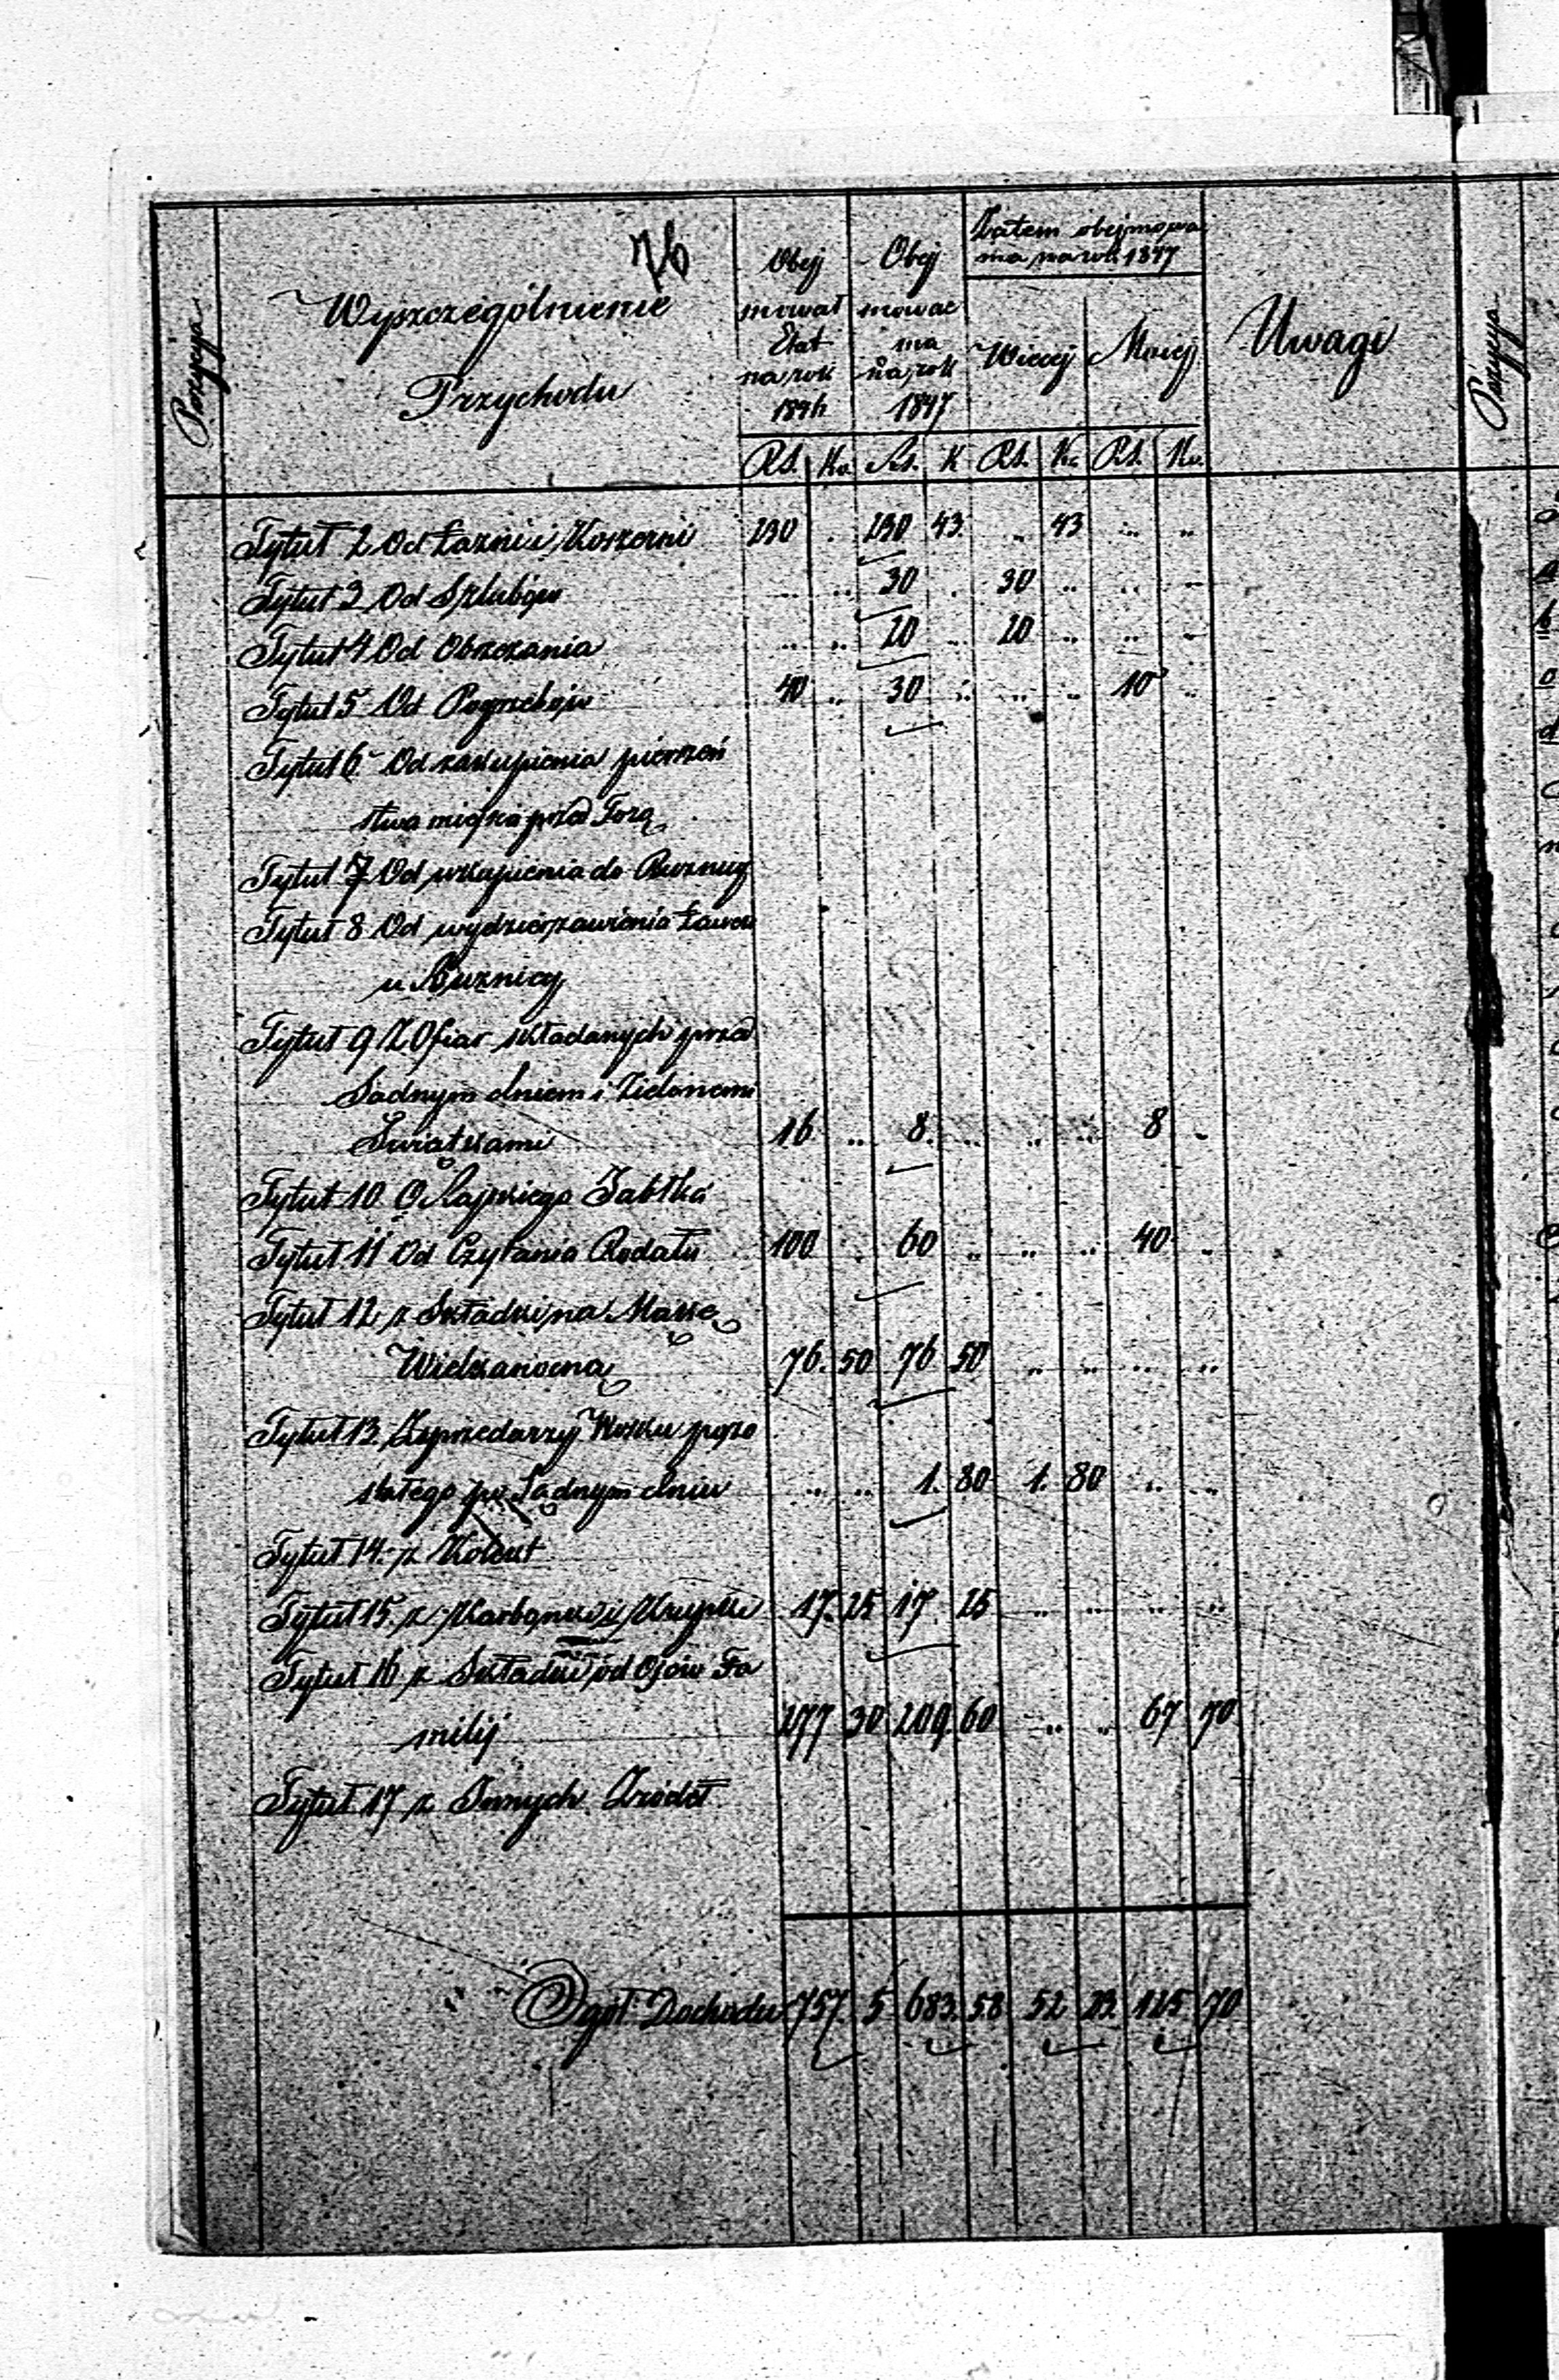 76
Pozycya
Wyszczególnienie
Przychodu
Obej
mował
Etat
na rok
1846
Obej
mować
ma
na rok
1847
Zatem obejmowa
ma na rok 1847
Więcej
Mniej
Uwagi
Pozycya
RS. Ko. Rs. K RS. Ko. RS. Ko.
Tytuł 2 Od Łaźni i Koszerni 230 . 230 43 .. 43 .. ..
Tytuł 3 Od Szlubów .. .. 30 . 30 .. .. ..
Tytuł 4 Od Obrzezania .. .. 20 .. 20 .. .. ..
Tytuł 5 Od Pogrzebów 40 .. 30 .. .. .. 10 ..
Tytuł 6 Od zakupienia pierszeń
stwa miejsca przed Torą
Tytuł 7 Od wkupienia do Buznicy
Tytuł 8 Od wydzierzawienia Ławek
w Buznicy
Tytuł 9 Z Ofiar składanych przed
Sądnym dniem i Zielonemi
Świątkami 16 .. 8. .. .. .. 8 ..
Tytuł 10 O Rajskiego Jabłka
Tytuł 11 Od Czytania Rodału 100 . 60 .. .. .. 40 ..
Tytuł 12 z Składki na Mące
Wielkanocną 76. 50 76 50 .. .. .. ..
Tytuł 13. Z sprzedarzy Wosku pozo
stałego po Sądnym dniu .. .. 1. 80 1. 80 .. ..
Tytuł 14. z Kolent
Tytuł 15. z Karbonki i Krupki 17. 25 17. 25 .. .. .. ..
Tytuł 16 z Składki od Ojców Fa
milij 277 30 209. 60 .. .. 67 70
Tytuł 17 z Innych Zrodeł
Ogół Dochodu 757. 5 683. 58 52 23. 125 70